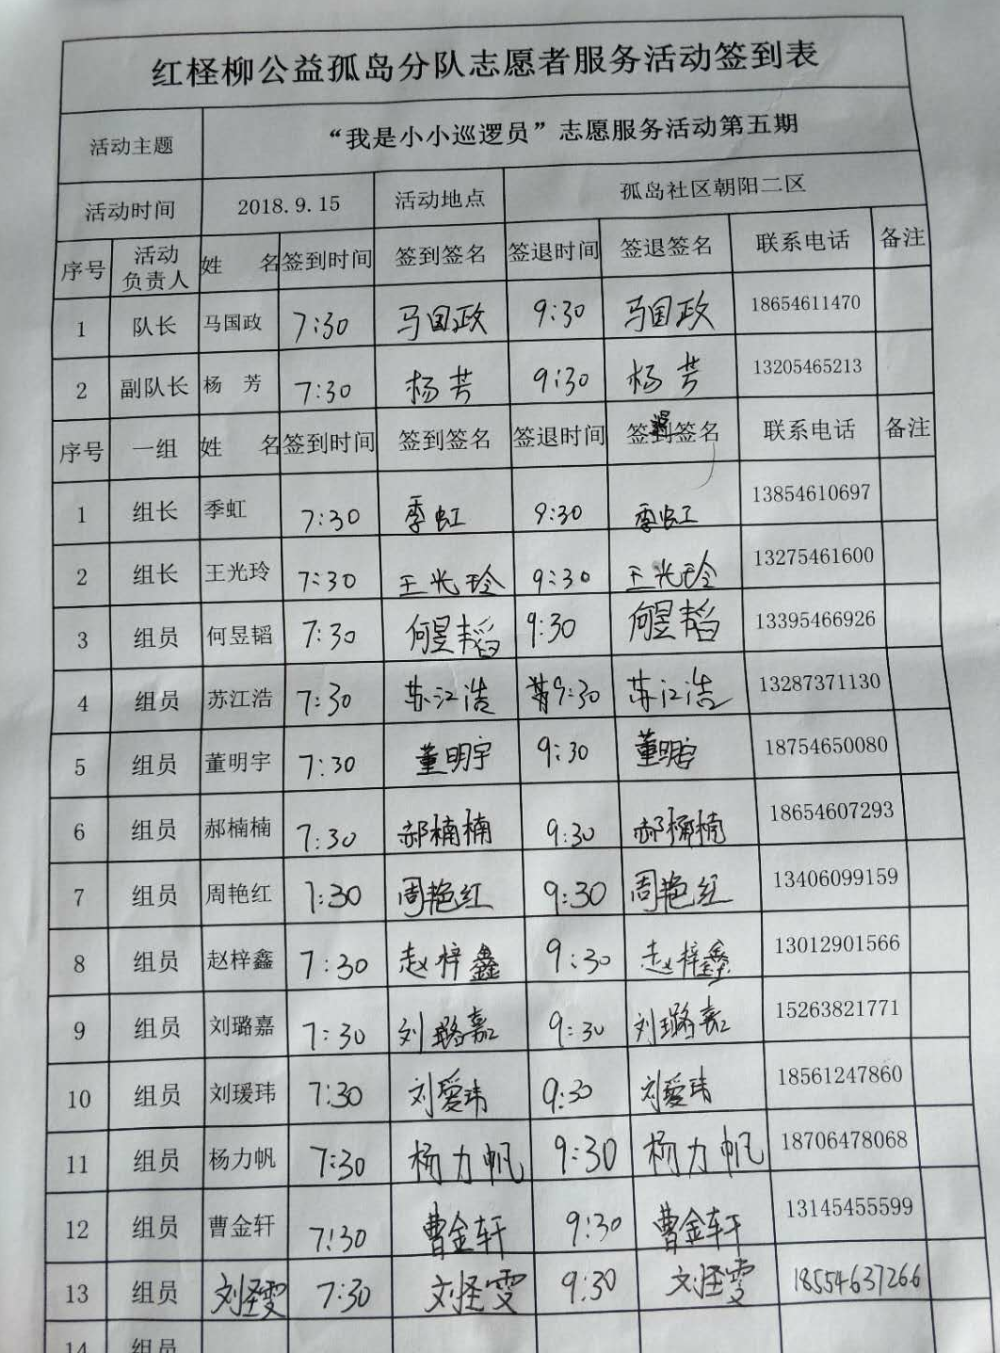 红柽柳公益孤岛分队志愿者服务活动签到表
活动主题 “我是小小巡逻员”志愿服务活动第五期
活动时间 2018.9.15 活动地点 孤岛社区朝阳二区
序号 活动负责人 姓名 签到时间 签到签名 签退时间 签退签名 联系电话 备注
1 队长 马国政 7:30 马国政 9:30 马国政 18654611470
2 副队长 杨芳 7:30 杨芳 9:30 杨芳 13205465213
序号 一组 姓名 签到时间 签到签名 签退时间 签退签名 联系电话 备注
1 组长 季虹 7:30 季虹 9:30 季虹 13854610697
2 组长 王光玲 7:30 王光玲 9:30 王光玲 13275461600
3 组员 何昱韬 7:30 何昱韬 9:30 何昱韬 13395466926
4 组员 苏江浩 7:30 苏江浩 9:30 苏江浩 13287371130
5 组员 董明宇 7:30 董明宇 9:30 董明宇 18754650080
6 组员 郝楠楠 7:30 郝楠楠 9:30 郝楠楠 18654607293
7 组员 周艳红 7:30 周艳红 9:30 周艳红 13406099159
8 组员 赵梓鑫 7:30 赵梓鑫 9:30 赵梓鑫 13012901566
9 组员 刘璐嘉 7:30 刘璐嘉 9:30 刘璐嘉 15263821771
10 组员 刘瑗玮 7:30 刘瑗玮 9:30 刘瑗玮 18561247860
11 组员 杨力帆 7:30 杨力帆 9:30 杨力帆 18706478068
12 组员 曹金轩 7:30 曹金轩 9:30 曹金轩 13145455599
13 组员 刘怪雯 7:30 刘怪雯 9:30 刘怪雯 18554637266
14 组员